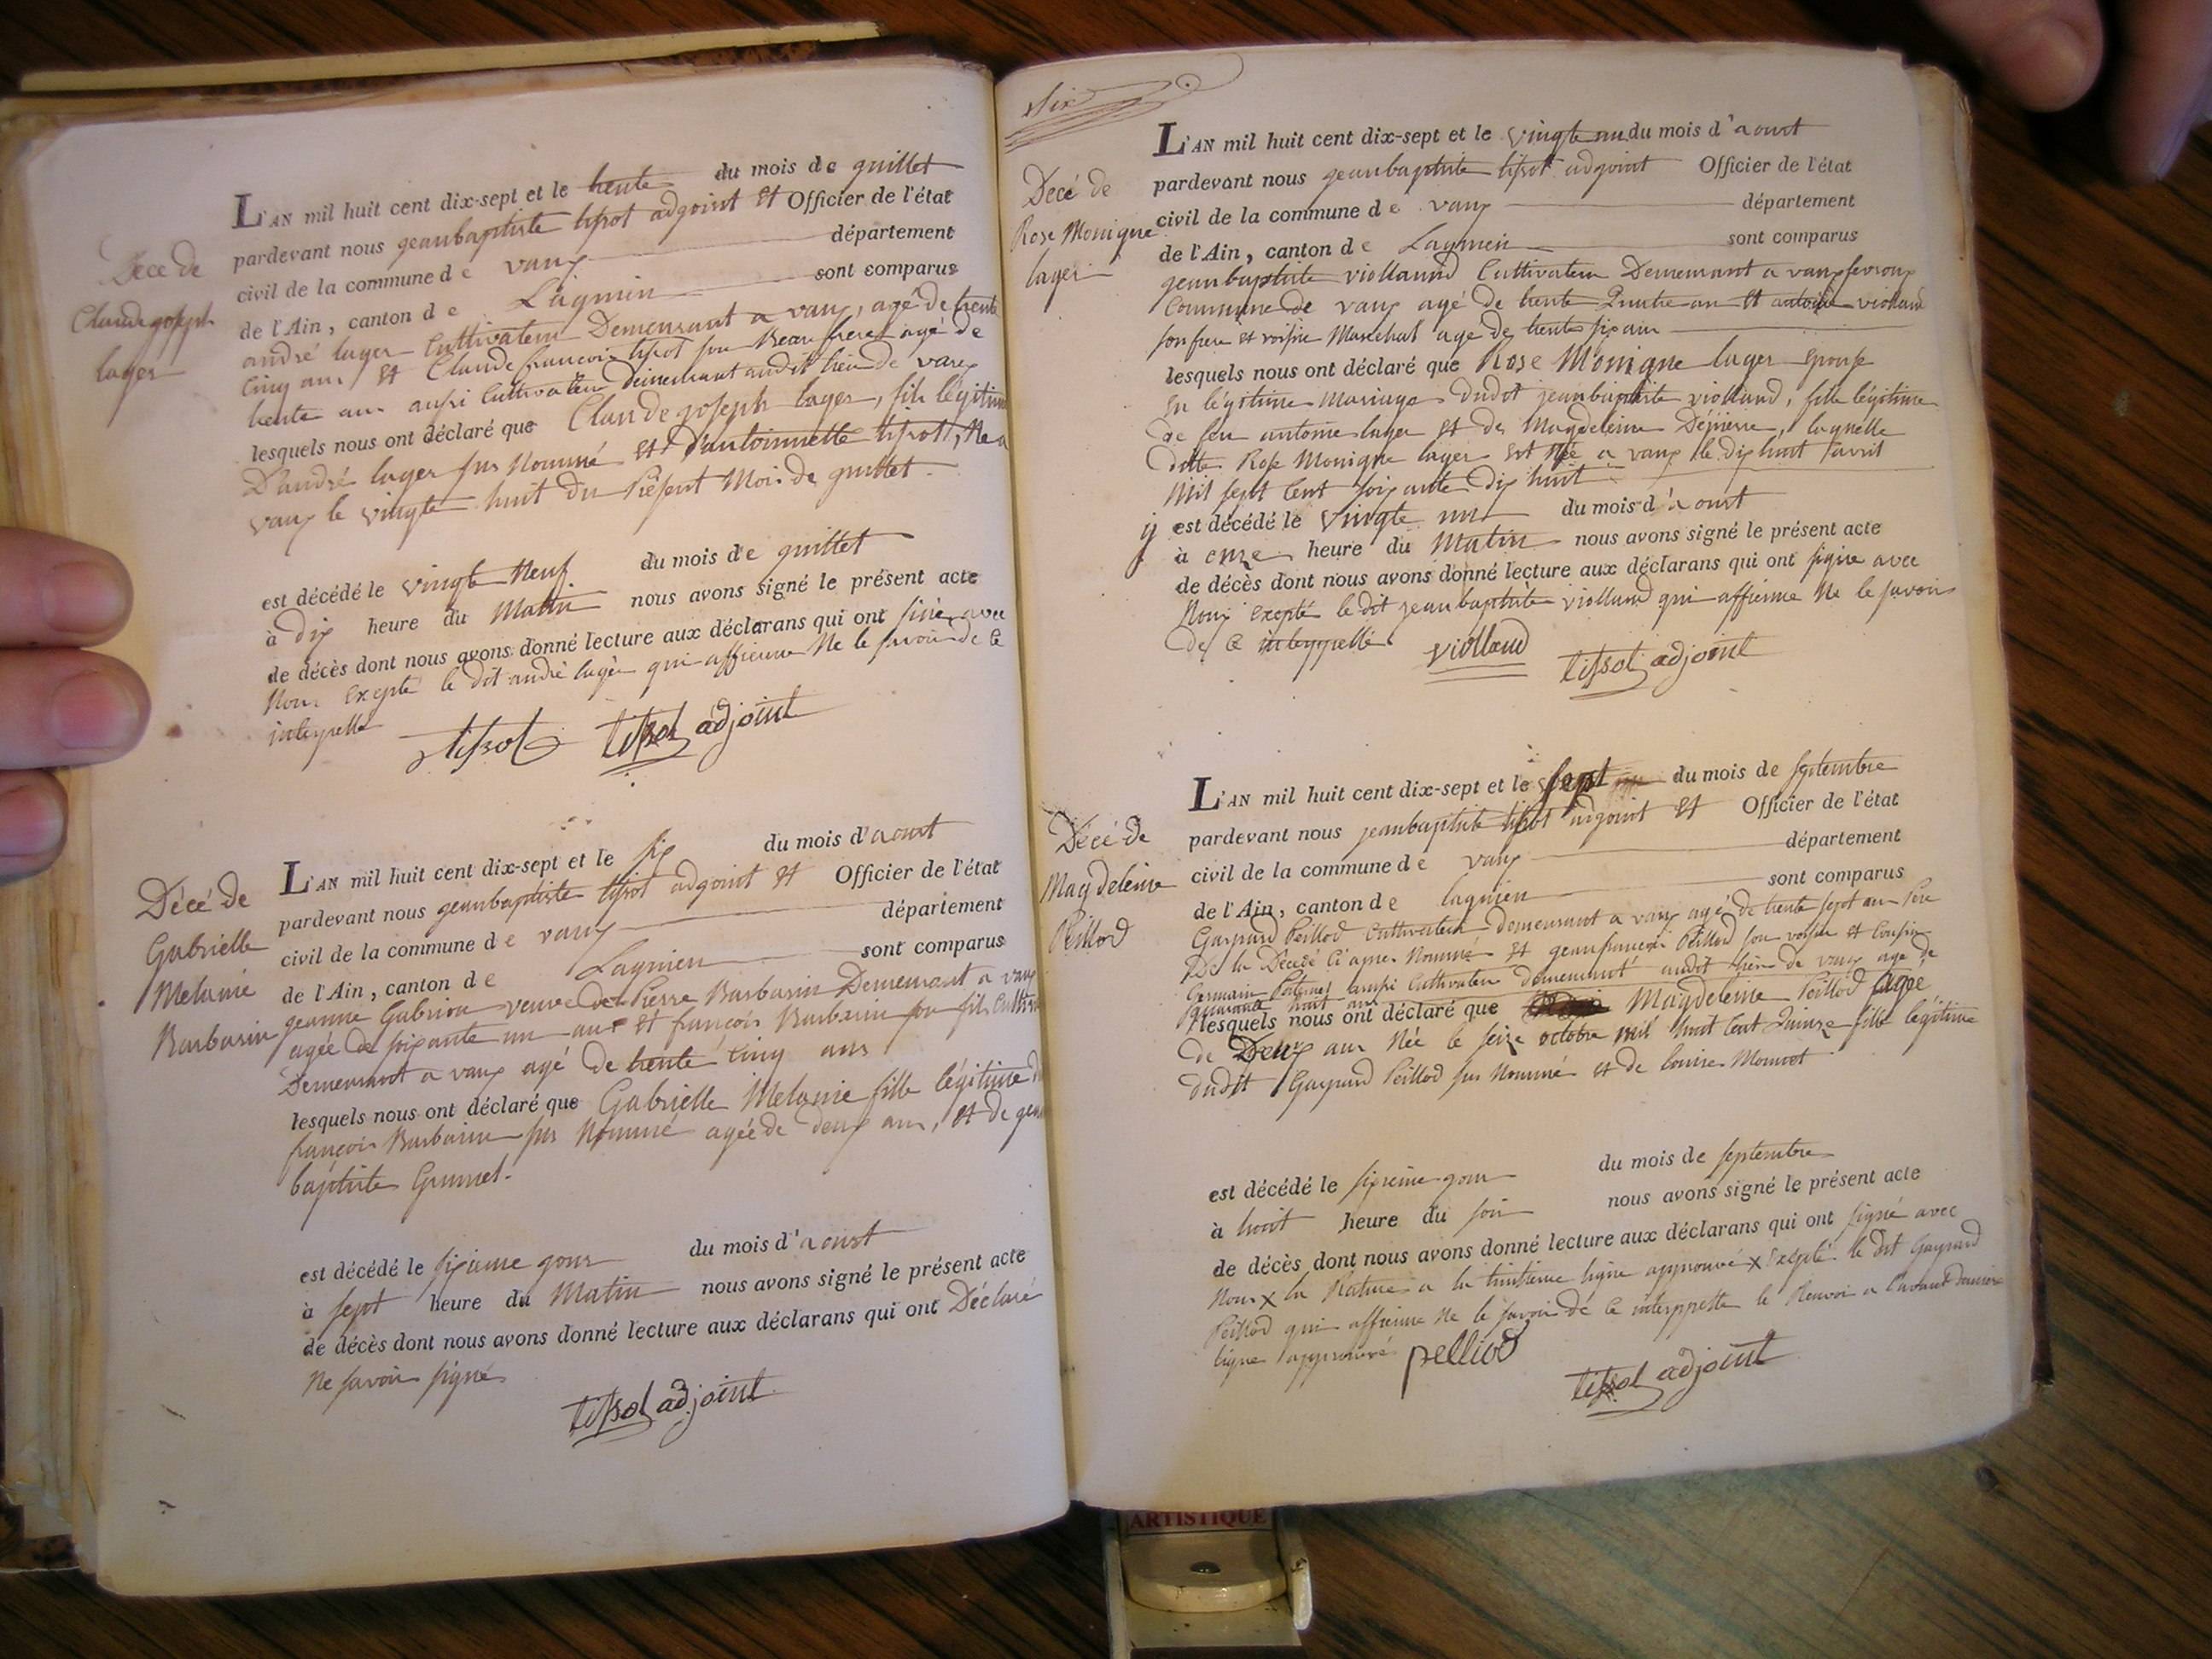 Décé de
Claude goseph
lager
L'AN mil huit cent dix-sept et le trente du mois de guillet
pardevant nous geanbaptiste tissot adgoint et Officier de l'état
civil de la commune de vaux département
de l'Ain, canton de Lagnien sont comparus
andré lager Cultivateur Demeurant a vaux, agé de trente
Cinq ans et Claude francois tissot son Beau frere agé de
trente ans aussi Cultivateur demeurant audit lieu de vaux
lesquels nous ont déclaré que Claude goseph lager, fils légitime
D'andré lager sus Nommé et D'antoinnette tissot, Né a
vaux le vingte huit du Présent Mois de guillet.
est décédé le vingte Neuf du mois de guillet
à dix heure du Matin nous avons signé le présent acte
de décès dont nous avons donné lecture aux déclarans qui ont siné avec
Nous Exepté le dit andré lager qui affirme Ne le savoir de Ce
interpellé
tissot tissot adjoint
Décé de
Gabrielle
Melanie
Barbarin
L'AN mil huit cent dix-sept et le six du mois d'aoust
pardevant nous geanbaptiste tissot adgoint et Officier de l'état
civil de la commune de vaux département
de l'Ain, canton de Lagnien sont comparus
geanne Gabriou veuve de Pierre Barbarin Demeurant a vaux
agée de soixante un ans et françois Barbarin son fils
Demeurant a vaux agé de trente Cinq ans
lesquels nous ont déclaré que Gabrielle Melanie fille légitime
françois Barbarin sus Nommé agée de deux ans, et de
baptiste Grumet.
est décédé le sixieme gour du mois d'aoust
à sept heure du Matin nous avons signé le présent acte
de décès dont nous avons donné lecture aux déclarans qui ont Déclaré
Ne savoir signé
tissot adjoint
six
Décé de
Rose Monique
lager
L'AN mil huit cent dix-sept et le vingte un du mois d'aoust
pardevant nous geanbaptiste tissot adgoint Officier de l'état
civil de la commune de vaux département
de l'Ain, canton de Lagnien sont comparus
geanbaptiste viollaund Cultivateur Demeurant a vaux fevroux
Commune de vaux agé de trente quatre an et antoine violland
son frere et voisin Marechal agé de trente six ans
lesquels nous ont déclaré que Rose Monique lager epouse
en légitime Mariage dudit jeanbaptiste violland, fille légitime
de feu antoine lager et de Magdeleine laquelle
ditte Rose Monique lager est Née a vaux le dix huit avril
Mil sept Cent soixante dix huit
y est décédé le vingte un du mois d'aoust
à onze heure du Matin nous avons signé le présent acte
de décès dont nous avons donné lecture aux déclarans qui ont signé avec
Nous Exepté le dit jeanbaptiste violland qui affirme Ne le savoir
de Ce interppellé
violland tissot adjoint
Décé de
Magdeleine
Peillod
L'AN mil huit cent dix-sept et le sept du mois de septembre
pardevant nous jeanbaptiste tissot adgoint et Officier de l'état
civil de la commune de vaux département
de l'Ain, canton de lagnien sont comparus
Gaspard Peillod Cultivateur demeurant a vaux agé de trente sept an Pere
De la Décédé Ci apres Nommé et geanfrancois Peillod son voisin et Cousin
Germain aussi Cultivateur demeurant audit lieu de vaux agé de
quarante huit ans
lesquels nous ont déclaré que Magdeleine Peillod agée
de Deux ans Née le seize octobre mil huit Cent quinze fille légitime
dudit Gaspard Peillod sus Nommé et de louise Monnot
est décédé le sixieme gour du mois de septembre
à huit heure du soir nous avons signé le présent acte
de décès dont nous avons donné lecture aux déclarans qui ont signé avec
Nous X la Rature a la huitieme ligne approuvé X Exepté le dit Gaspard
Peillod qui affirme Ne le savoir de Ce interppellé le Renvoi a l'avant derniere
ligne approuvé
pelliod tissot adjoint
ARTISTIQUE